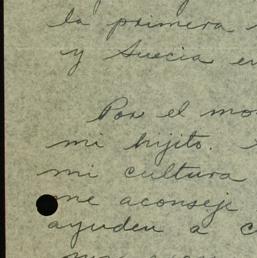 la primera
y Suecia en
Por el mo
mi hijito.
mi cultura
me aconseje
ayuden a c